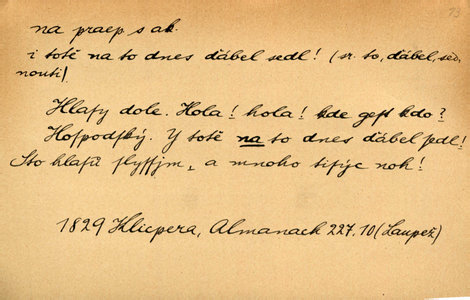 13
na praep s ak.
i totě na to dnes ďábel sedl! (sr. to, ďábel, sed-
nouti)
Hlasy dole. Hola! hola! kde gest kdo?
Hospodský. Y totě na to dnes ďábel sedl!
Sto hlasů slyssjm, a mnoho tisýc noh!
1829 Klicpera, Almanach 227.10 (Laupež)